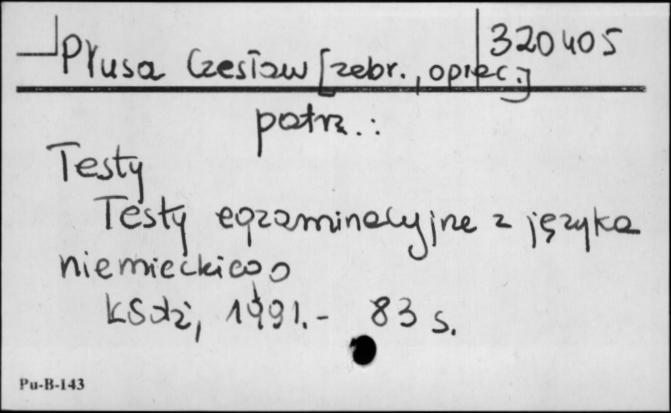 320405
Płusa Czesław [zebr., oprac.]
patrz.:
Testy
Testy egzaminacyjne z języka
niemieckiego
Łódź, 1991.- 83 s.
Pu-B-143